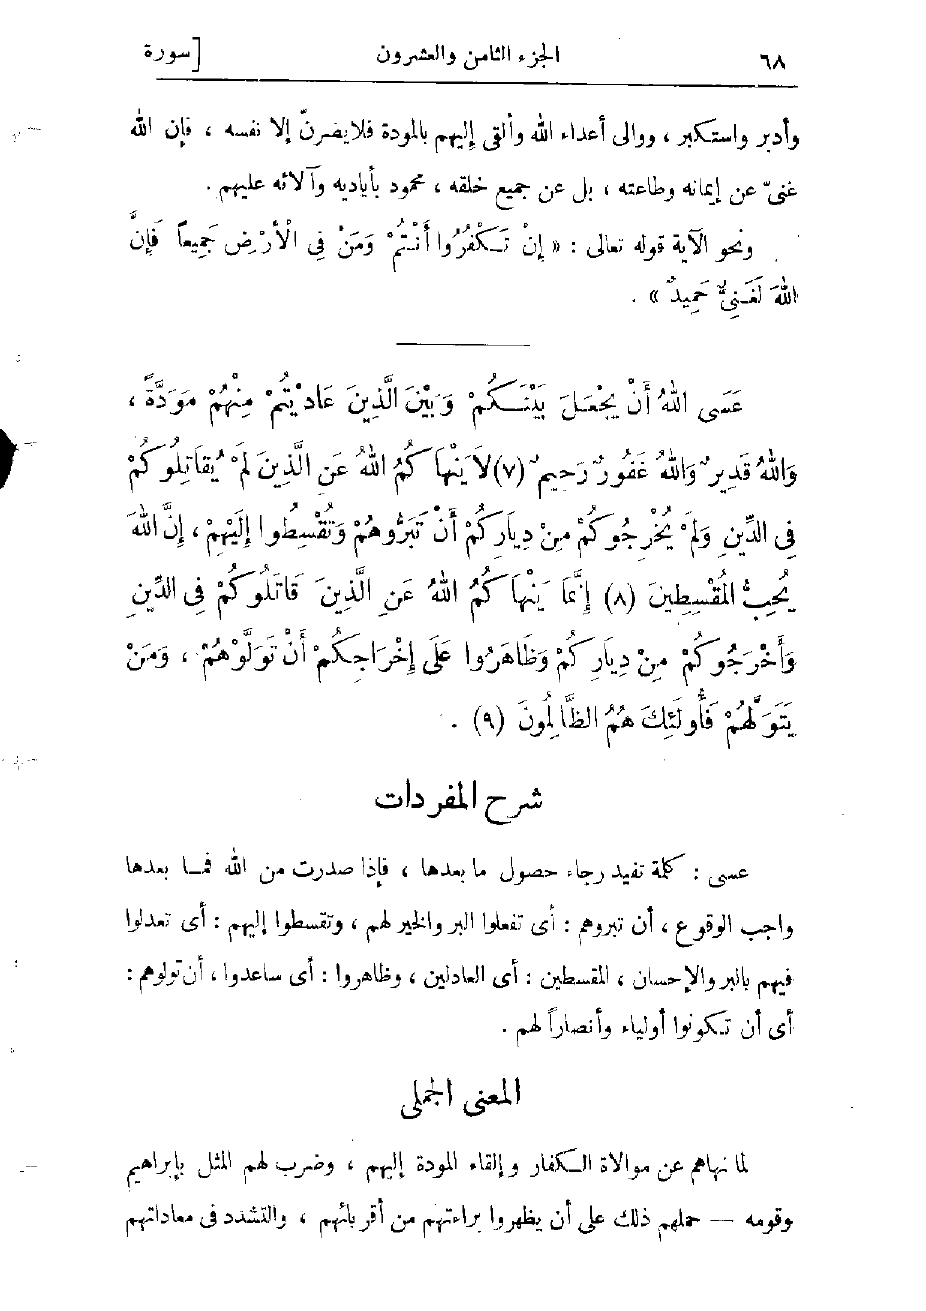 ٦٨ الجزء الثامن والعشرون [ سورة
وأدبر واستكبر ، ووالى أعداء الله وألقى إليهم بالمودة فلا يضرنّ إلا نفسه ، فإن الله
غنىّ عن إيمانه وطاعته ، بل عن جميع خلقه ، محمود بأياديه وآلائه عليهم .
ونحو الآية قوله تعالى : « إِنْ تَكْفُرُوا أَنْتُمْ وَمَنْ فِى الْأَرْضِ جَمِيعاً فَإِنَّ
اللهَ لَغَنِىٌّ حَمِيدٌ » .
عَسَى اللهُ أَنْ يَجْعَلَ بَيْنَكُمْ وَبَيْنَ الَّذِينَ عَادَيْتُمْ مِنْهُمْ مَوَدَّةً ،
وَاللهُ قَدِيرٌ وَاللهُ غَفُورٌ رَحِيمٌ (٧) لَا يَنْهَاكُمُ اللهُ عَنِ الَّذِينَ لَمْ يُقَاتِلُوكُمْ
فِى الدِّينِ وَلَمْ يُخْرِجُوكُمْ مِنْ دِيَارِكُمْ أَنْ تَبَرُّوهُمْ وَتُقْسِطُوا إِلَيْهِمْ ، إِنَّ اللهَ
يُحِبُّ الْمُقْسِطِينَ (٨) إِنَّمَا يَنْهَاكُمُ اللهُ عَنِ الَّذِينَ قَاتَلُوكُمْ فِى الدِّينِ
وَأَخْرَجُوكُمْ مِنْ دِيَارِكُمْ وَظَاهَرُوا عَلَى إِخْرَاجِكُمْ أَنْ تَوَلَّوْهُمْ ، وَمَنْ
يَتَوَلَّهُمْ فَأُولَئِكَ هُمُ الظَّالِمُونَ (٩) .
شرح المفردات
عسى : كلمة تفيد رجاء حصول ما بعدها ، فإذا صدرت من الله فما بعدها
واجب الوقوع ، أن تبروهم : أى تفعلوا البر والخير لهم ، وتقسطوا إليهم : أى تعدلوا
فيهم بالبر والإحسان ، المقسطين : أى العادلين ، وظاهروا : أى ساعدوا ، أن تولوهم :
أى أن تكونوا أولياء وأنصاراً لهم .
المعنى الجملى
لما نهاهم عن موالاة الكفار وإلقاء المودة إليهم ، وضرب لهم المثل بإبراهيم
وقومه — حملهم ذلك على أن يظهروا براءتهم من أقربائهم ، والتشدد فى معاداتهم